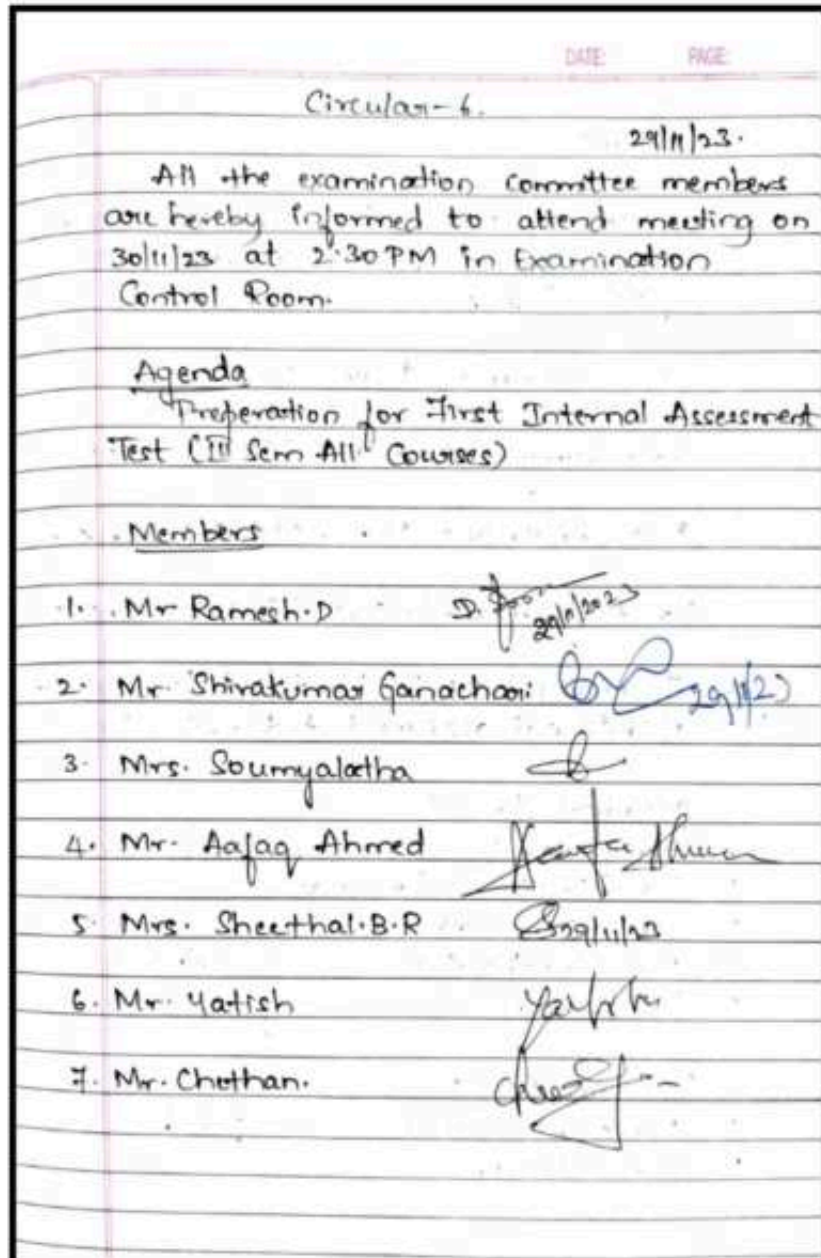 DATE: PAGE:
Circular-6.
29/11/23.
All the examination committee members
are hereby informed to attend meeting on
30/11/23 at 2:30 PM in Examination
Control Room.
Agenda
Preperation for First Internal Assessment
Test (III Sem All Courses)
Members
1. Mr Ramesh.D D. 29/11/2023
2. Mr. Shivakumar Ganachari 29/11/23
3. Mrs. Soumyalatha
4. Mr. Aafaq Ahmed
5. Mrs. Sheethal.B.R 29/11/23
6. Mr. Yatish
7. Mr. Chethan.